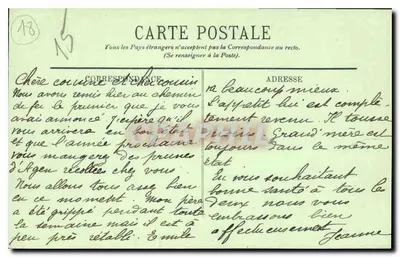 18
15
CARTE POSTALE
Tous les Pays étrangers n'acceptent pas la Correspondance au recto.
(Se renseigner à la Poste).
CORRESPONDANCE
ADRESSE
Chère cousine et cher cousin
Nous avons remis hier au chemin
de fer le prunier que je vous
avais annoncé J'espère qu'il
vous arrivera en bon état
et que l'année prochaine
vous mangerez des prunes
d'Agen récoltées chez vous
Nous allons tous assez bien
en ce moment. Mon père
a été grippé pendant toute
la semaine mais il est à
peu près rétabli. Emile
va beaucoup mieux.
L'appétit lui est complè-
tement revenu. Il tousse
moins. Grand'mère est
toujours dans le même
état
En vous souhaitant
bonne santé à tous les
deux nous vous
embrassons bien
affectueusement
Jeanne